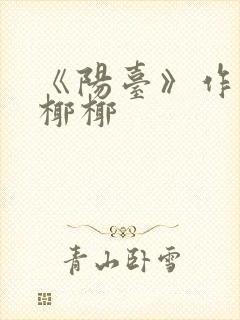 《陽臺》作
椰椰
青山卧雪